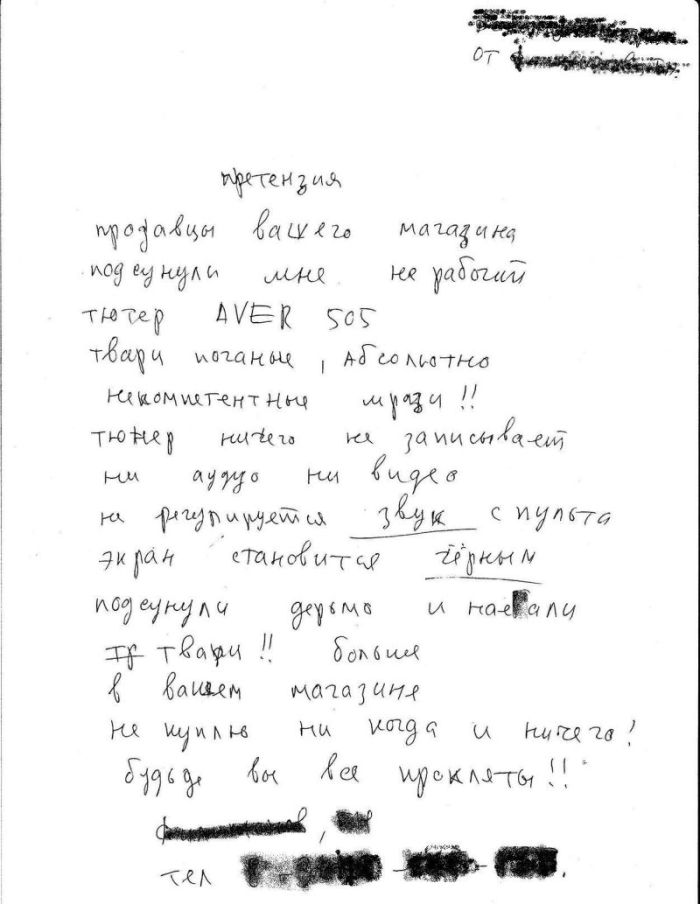 от
претензия
продавцы вашего магазина
подсунули мне не рабочий
тютер AVER 505
твари поганые, абсольотно
некомпетентные мрази!!
тюнер ничего не записывает
ни аудуо ни видео
не регулируется звук с пульта
экран становится чёрным
подсунули дерьмо и нае али
твари!! больше
в вашем магазине
не куплю ни когда и ничего!
будьде вы все прокляты!!
,
тел .